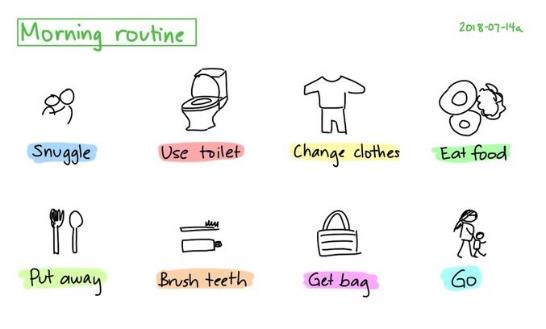 Morning routine
2018-07-14a
Snuggle
Use toilet
Change clothes
Eat food
Put away
Brush teeth
Get bag
Go